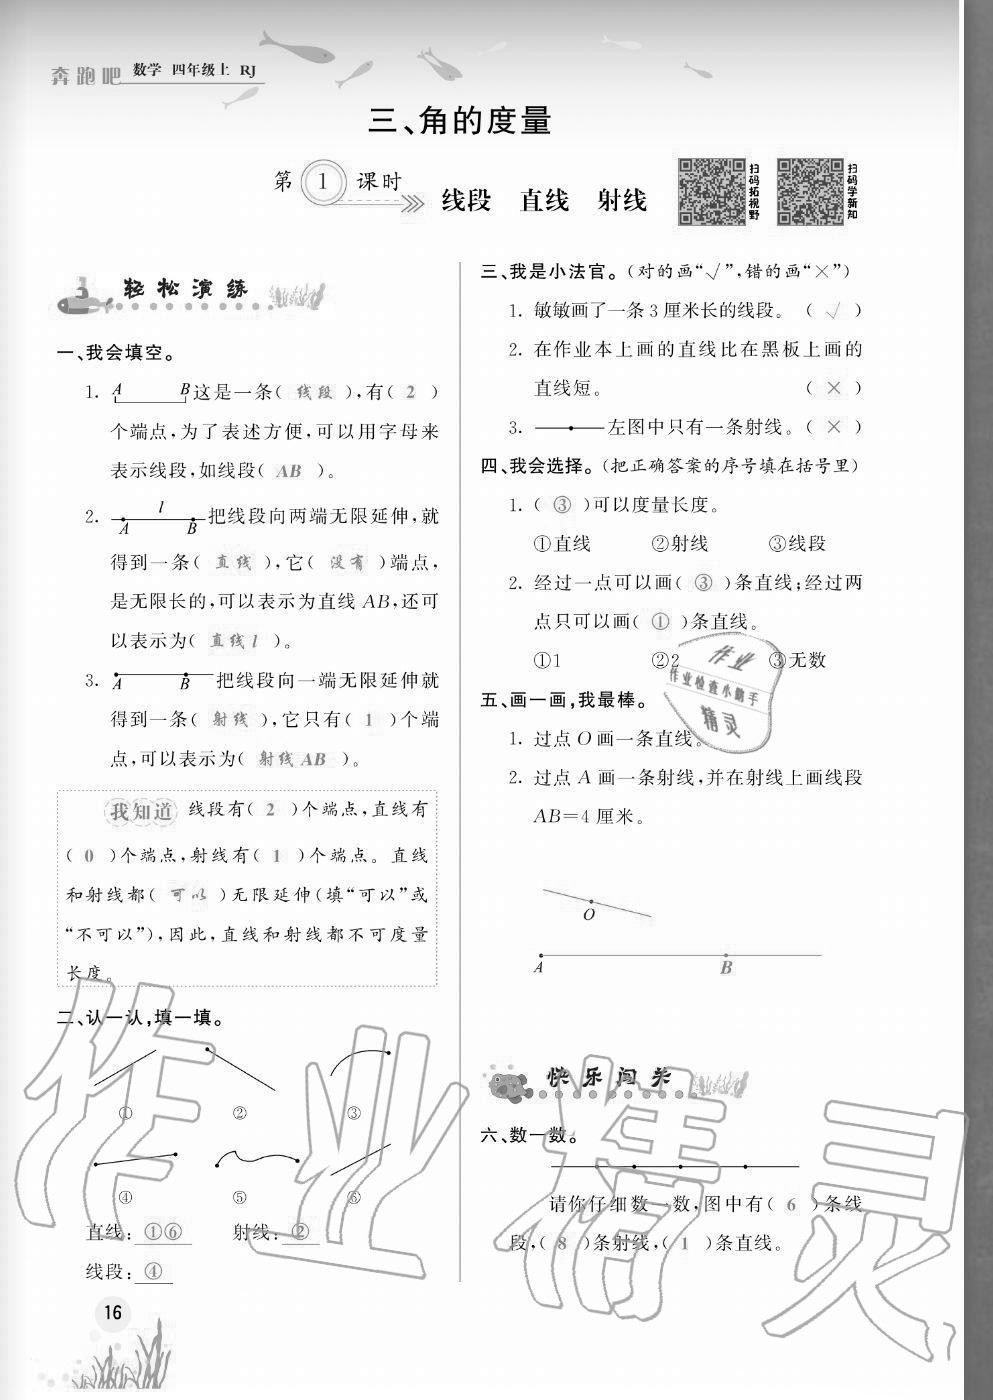 奔跑吧 数学 四年级上 RJ
三、角的度量
第1课时 线段 直线 射线
扫码拓视野
扫码学新知
轻松演练
一、我会填空。
1. A B这是一条( 线段 ),有( 2 )
个端点,为了表述方便,可以用字母来
表示线段,如线段( AB )。
2. A l B 把线段向两端无限延伸,就
得到一条( 直线 ),它( 没有 )端点,
是无限长的,可以表示为直线 AB,还可
以表示为( 直线 l )。
3. A B 把线段向一端无限延伸就
得到一条( 射线 ),它只有( 1 )个端
点,可以表示为( 射线 AB )。
我知道 线段有( 2 )个端点,直线有
( 0 )个端点,射线有( 1 )个端点。直线
和射线都( 可以 )无限延伸(填“可以”或
“不可以”),因此,直线和射线都不可度量
长度。
二、认一认,填一填。
① ② ③
④ ⑤ ⑥
直线: ①⑥ 射线: ②
线段: ④
16
三、我是小法官。(对的画“√”,错的画“×”)
1. 敏敏画了一条 3 厘米长的线段。 ( √ )
2. 在作业本上画的直线比在黑板上画的
直线短。 ( × )
3. 左图中只有一条射线。( × )
四、我会选择。(把正确答案的序号填在括号里)
1. ( ③ )可以度量长度。
①直线 ②射线 ③线段
2. 经过一点可以画( ③ )条直线;经过两
点只可以画( ① )条直线。
①1 ②2 ③无数
五、画一画,我最棒。
1. 过点 O 画一条直线。
2. 过点 A 画一条射线,并在射线上画线段
AB=4 厘米。
O
A B
快乐闯关
六、数一数。
请你仔细数一数,图中有( 6 )条线
段,( 8 )条射线,( 1 )条直线。
作业
作业检查小助手
精灵
作业精灵